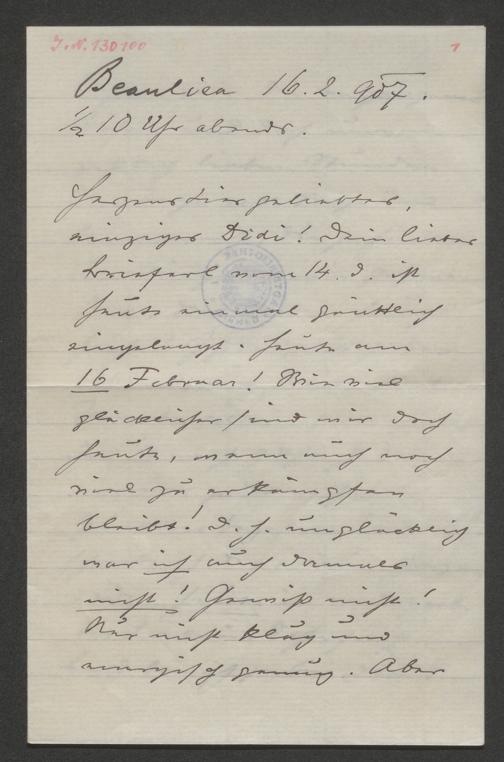 I.N. 130100
1
Beaulieu 16.2.907.
1/2 10 Uhr abends.
Herzensdiergeliebter,
einziger Didi! Dein lieber
Brieferl vom 14. d. ist
heute einmal pünktlich
eingelangt. Heute am
16 Februar! Wie viel
glücklicher sind wir doch
heute, wenn auch noch
viel zu erkämpfen
bleibt! D. h. unglücklich
war ich auch damals
nicht! Gewiß nicht!
Nur nicht klug und
energisch genug. Aber